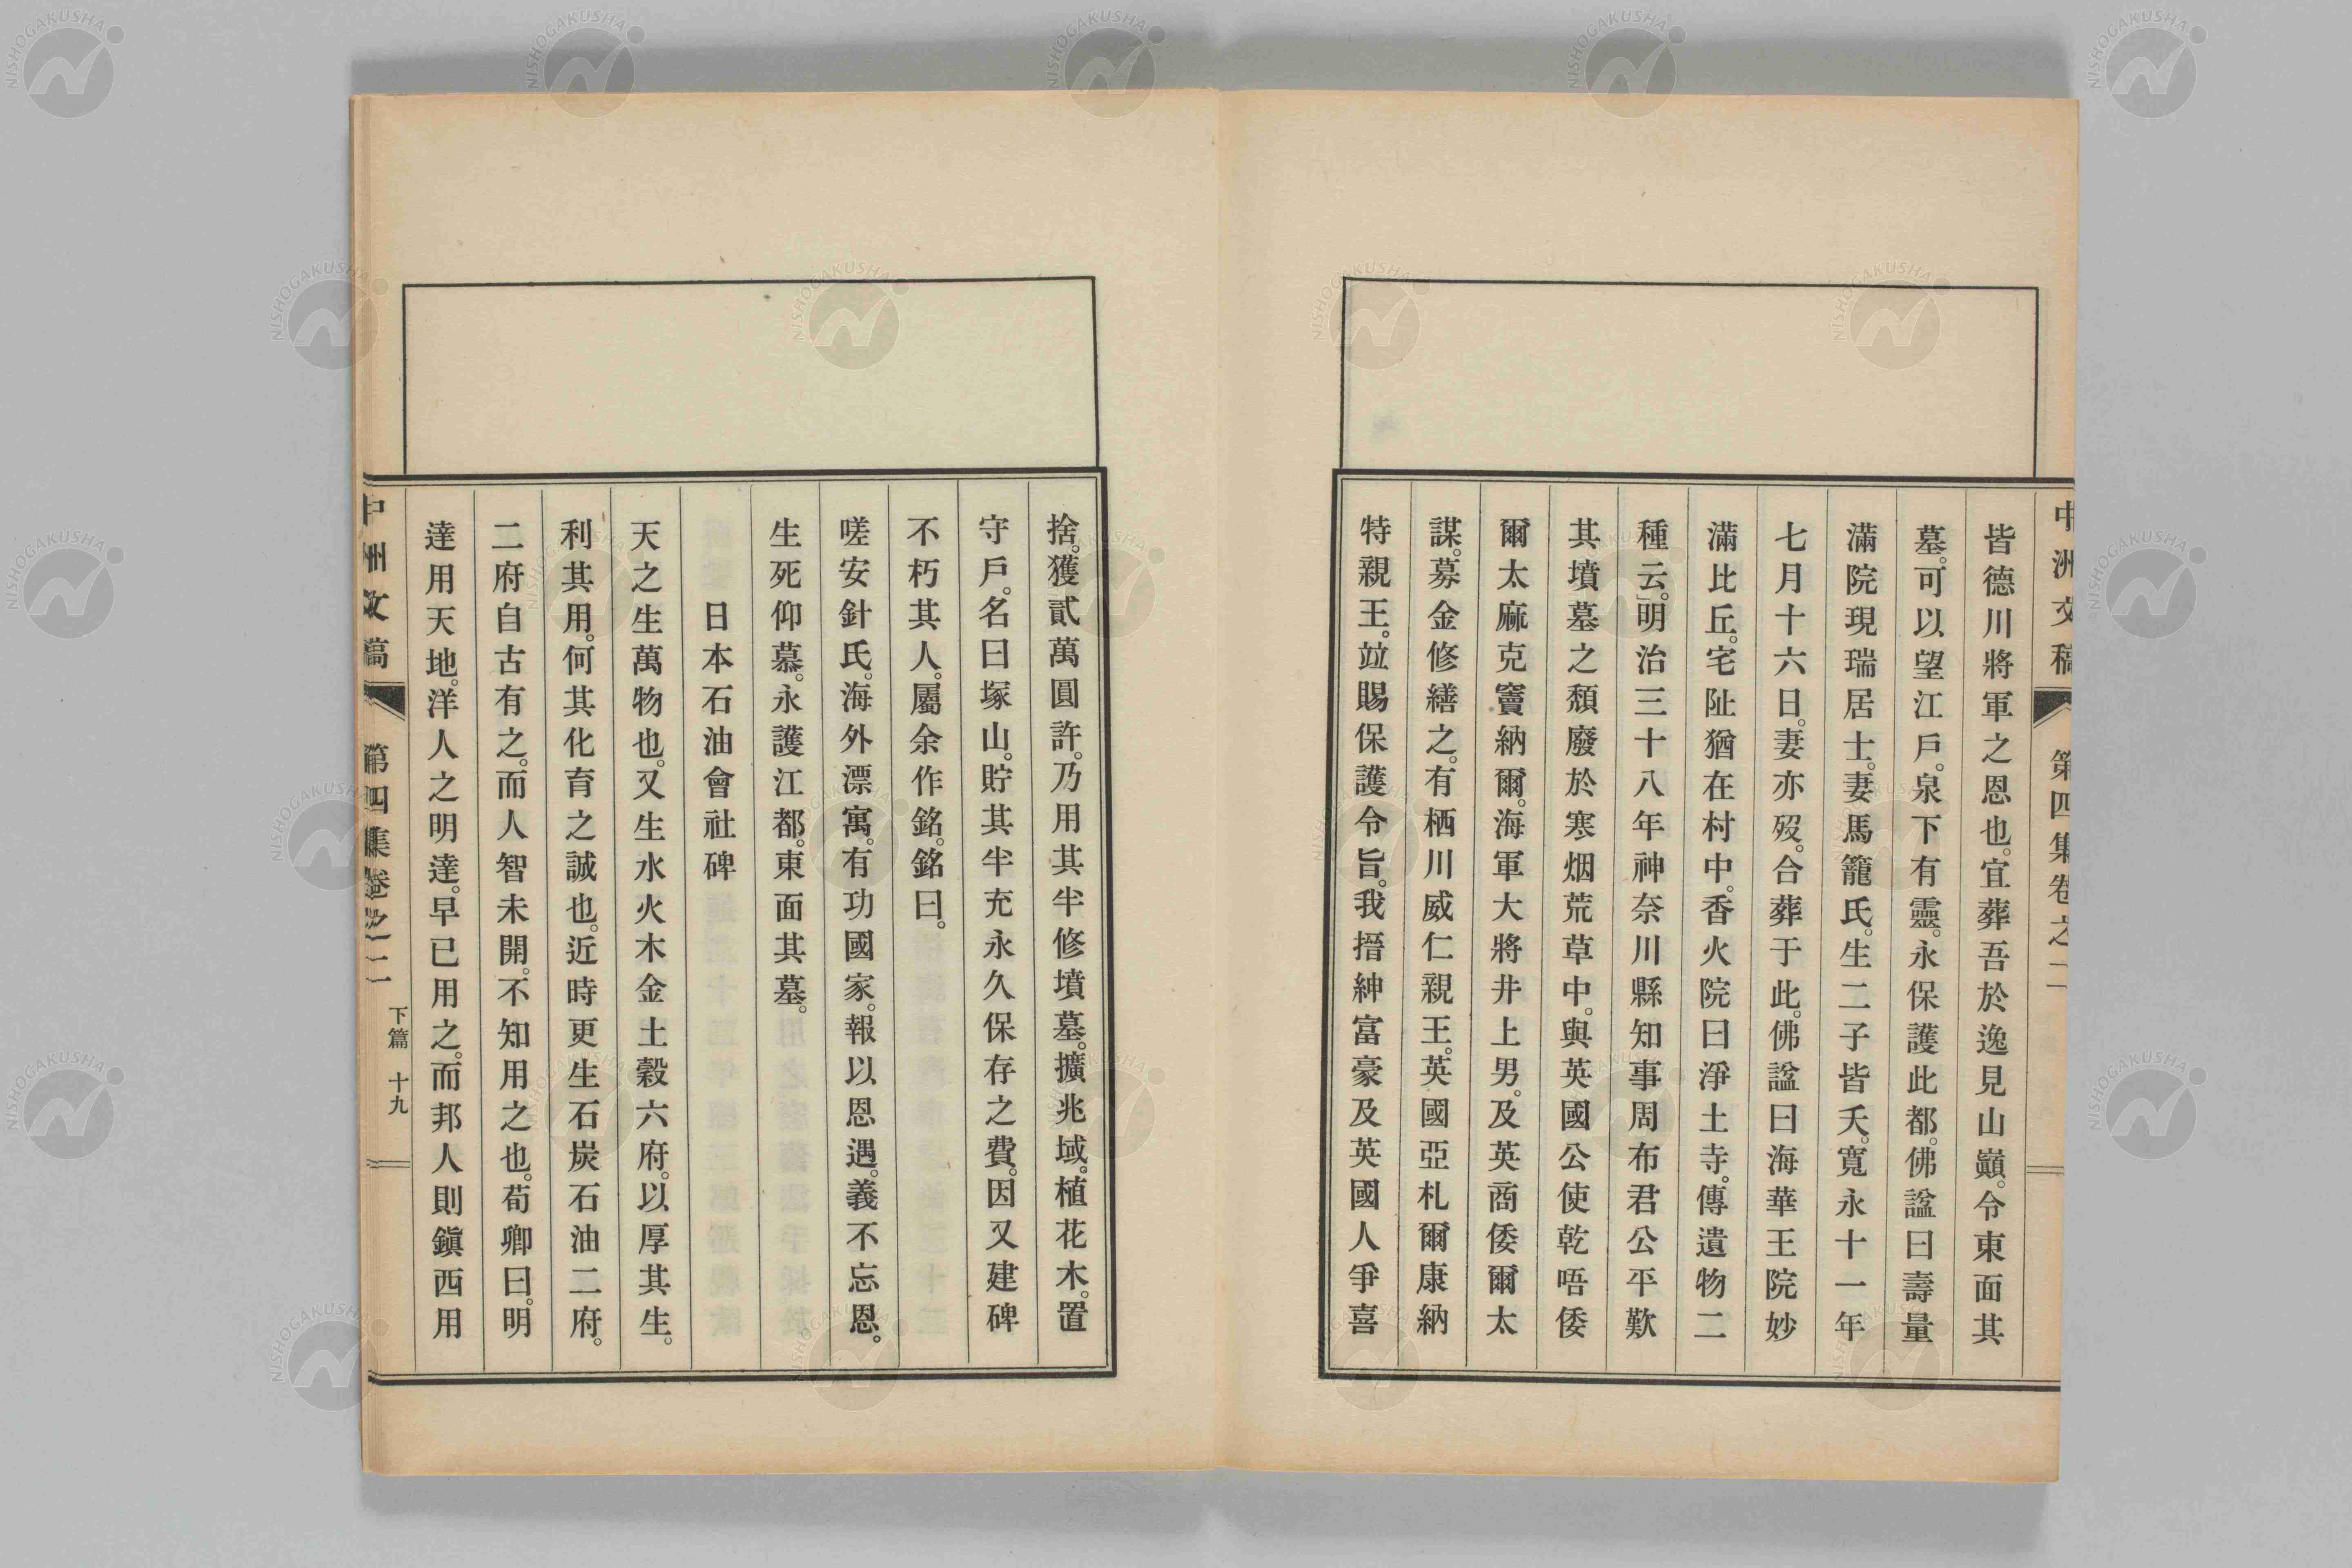 中洲文稿 第四集卷之二
皆德川將軍之恩也。宜葬吾於逸見山巓。令東面其
墓。可以望江戶。泉下有靈。永保護此都。佛諡曰壽量
滿院現瑞居士。妻馬籠氏。生二子皆夭。寬永十一年
七月十六日。妻亦歿。合葬于此。佛諡曰海華王院妙
滿比丘。宅阯猶在村中。香火院曰淨土寺。傳遺物二
種云。」明治三十八年神奈川縣知事周布君公平歎
其墳墓之頹廢於寒烟荒草中。與英國公使乾唔倭
爾太麻克竇納爾。海軍大將井上男。及英商倭爾太
謀。募金修繕之。有栖川威仁親王。英國亞札爾康納
特親王。竝賜保護令旨。我搢紳富豪及英國人爭喜
捨。獲貳萬圓許。乃用其半修墳墓。擴兆域。植花木。置
守戶。名曰塚山。貯其半充永久保存之費。因又建碑
不朽其人。屬余作銘。銘曰。
嗟安針氏。海外漂寓。有功國家。報以恩遇。義不忘恩。
生死仰慕。永護江都。東面其墓。
日本石油會社碑
天之生萬物也。又生水火木金土穀六府。以厚其生。
利其用。何其化育之誠也。近時更生石炭石油二府。
二府自古有之。而人智未開。不知用之也。荀卿曰。明
達用天地。洋人之明達。早已用之。而邦人則鎭西用
中洲文稿 第四集卷之二 下篇 十九
NISHOGAKUSHA